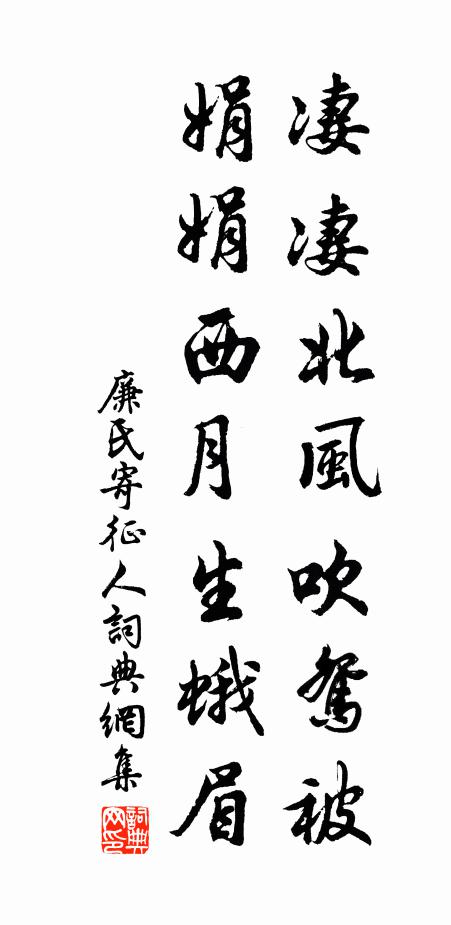 凄凄北風吹鴛被
娟娟西月生蛾眉
廉氏寄征人詞典網集
詞典网印